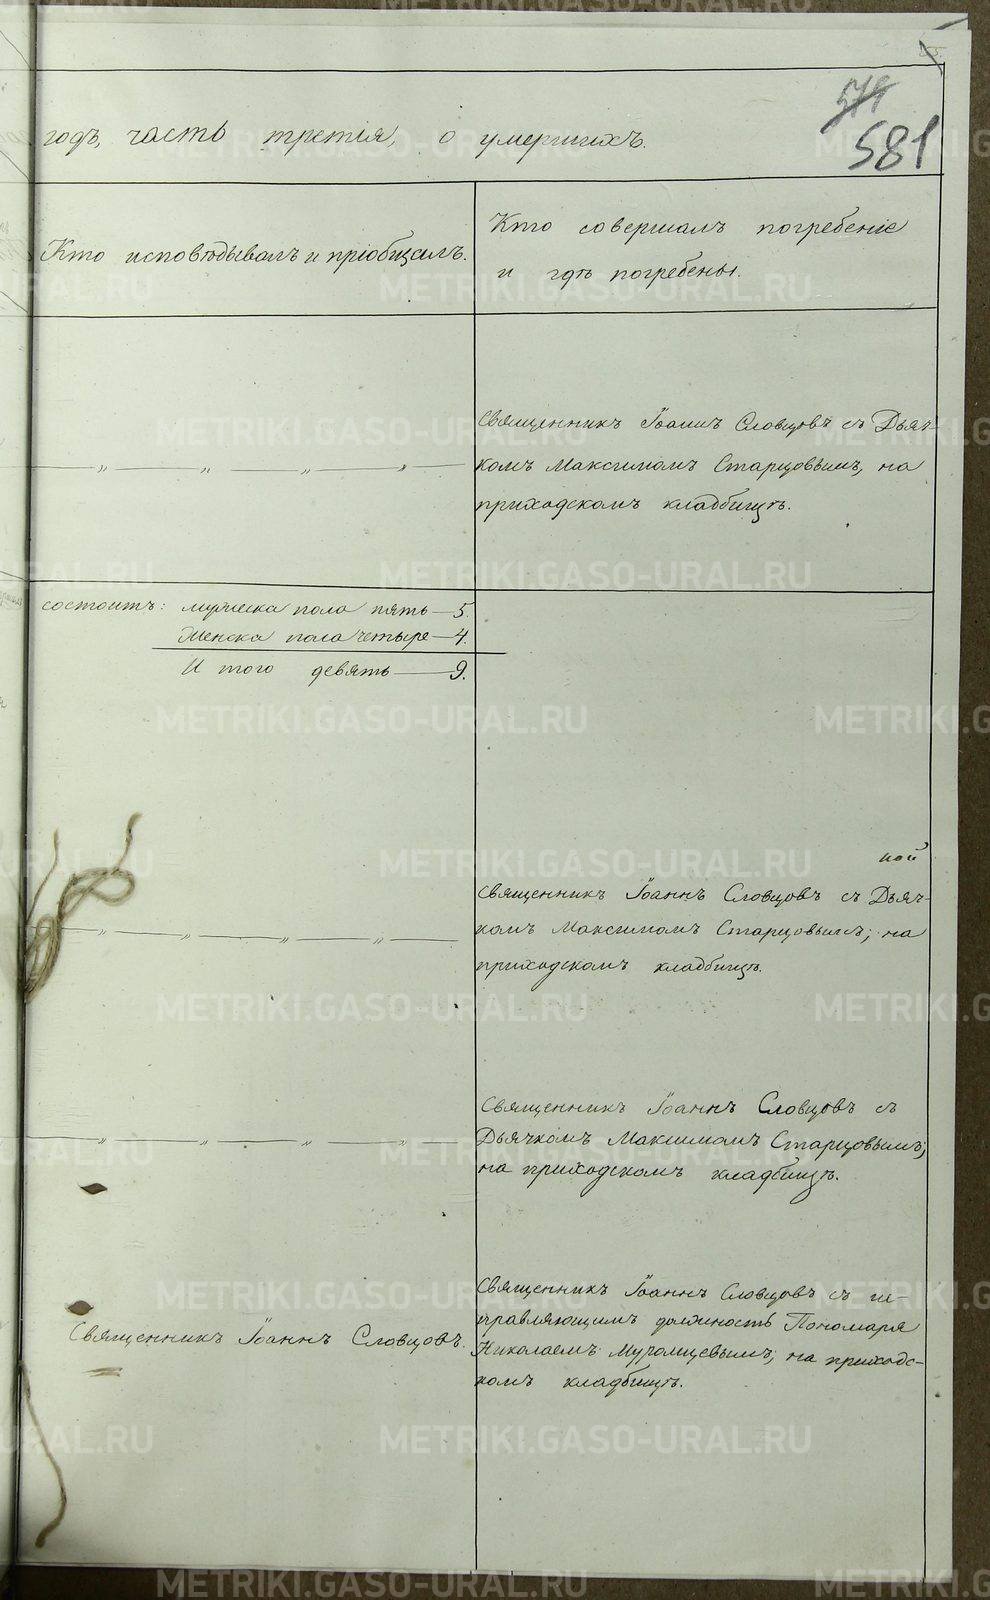 579
581
годъ, часть третія, о умершихъ.
Кто исповѣдывалъ и пріобщилъ.
Кто совершалъ погребеніе
и гдѣ погребены.
Священникъ Іоаннъ Словцовъ съ Дьяч-
комъ Максимомъ Старцовымъ, на
приходскомъ кладбищѣ.
состоитъ: мужеска пола пять — 5.
Женска пола четыре — 4.
И того девять — 9.
ной
Священникъ Іоаннъ Словцовъ съ Дьяч-
комъ Максимомъ Старцовымъ; на
приходскомъ кладбищѣ.
Священникъ Іоаннъ Словцовъ съ
Дьячкомъ Максимомъ Старцовымъ;
на приходскомъ кладбищѣ.
Священникъ Іоаннъ Словцовъ.
Священникъ Іоаннъ Словцовъ съ ис-
правляющимъ должность Пономаря
Николаемъ Муромцевымъ; на приходс-
комъ кладбищѣ.
METRIKI.GASO-URAL.RU